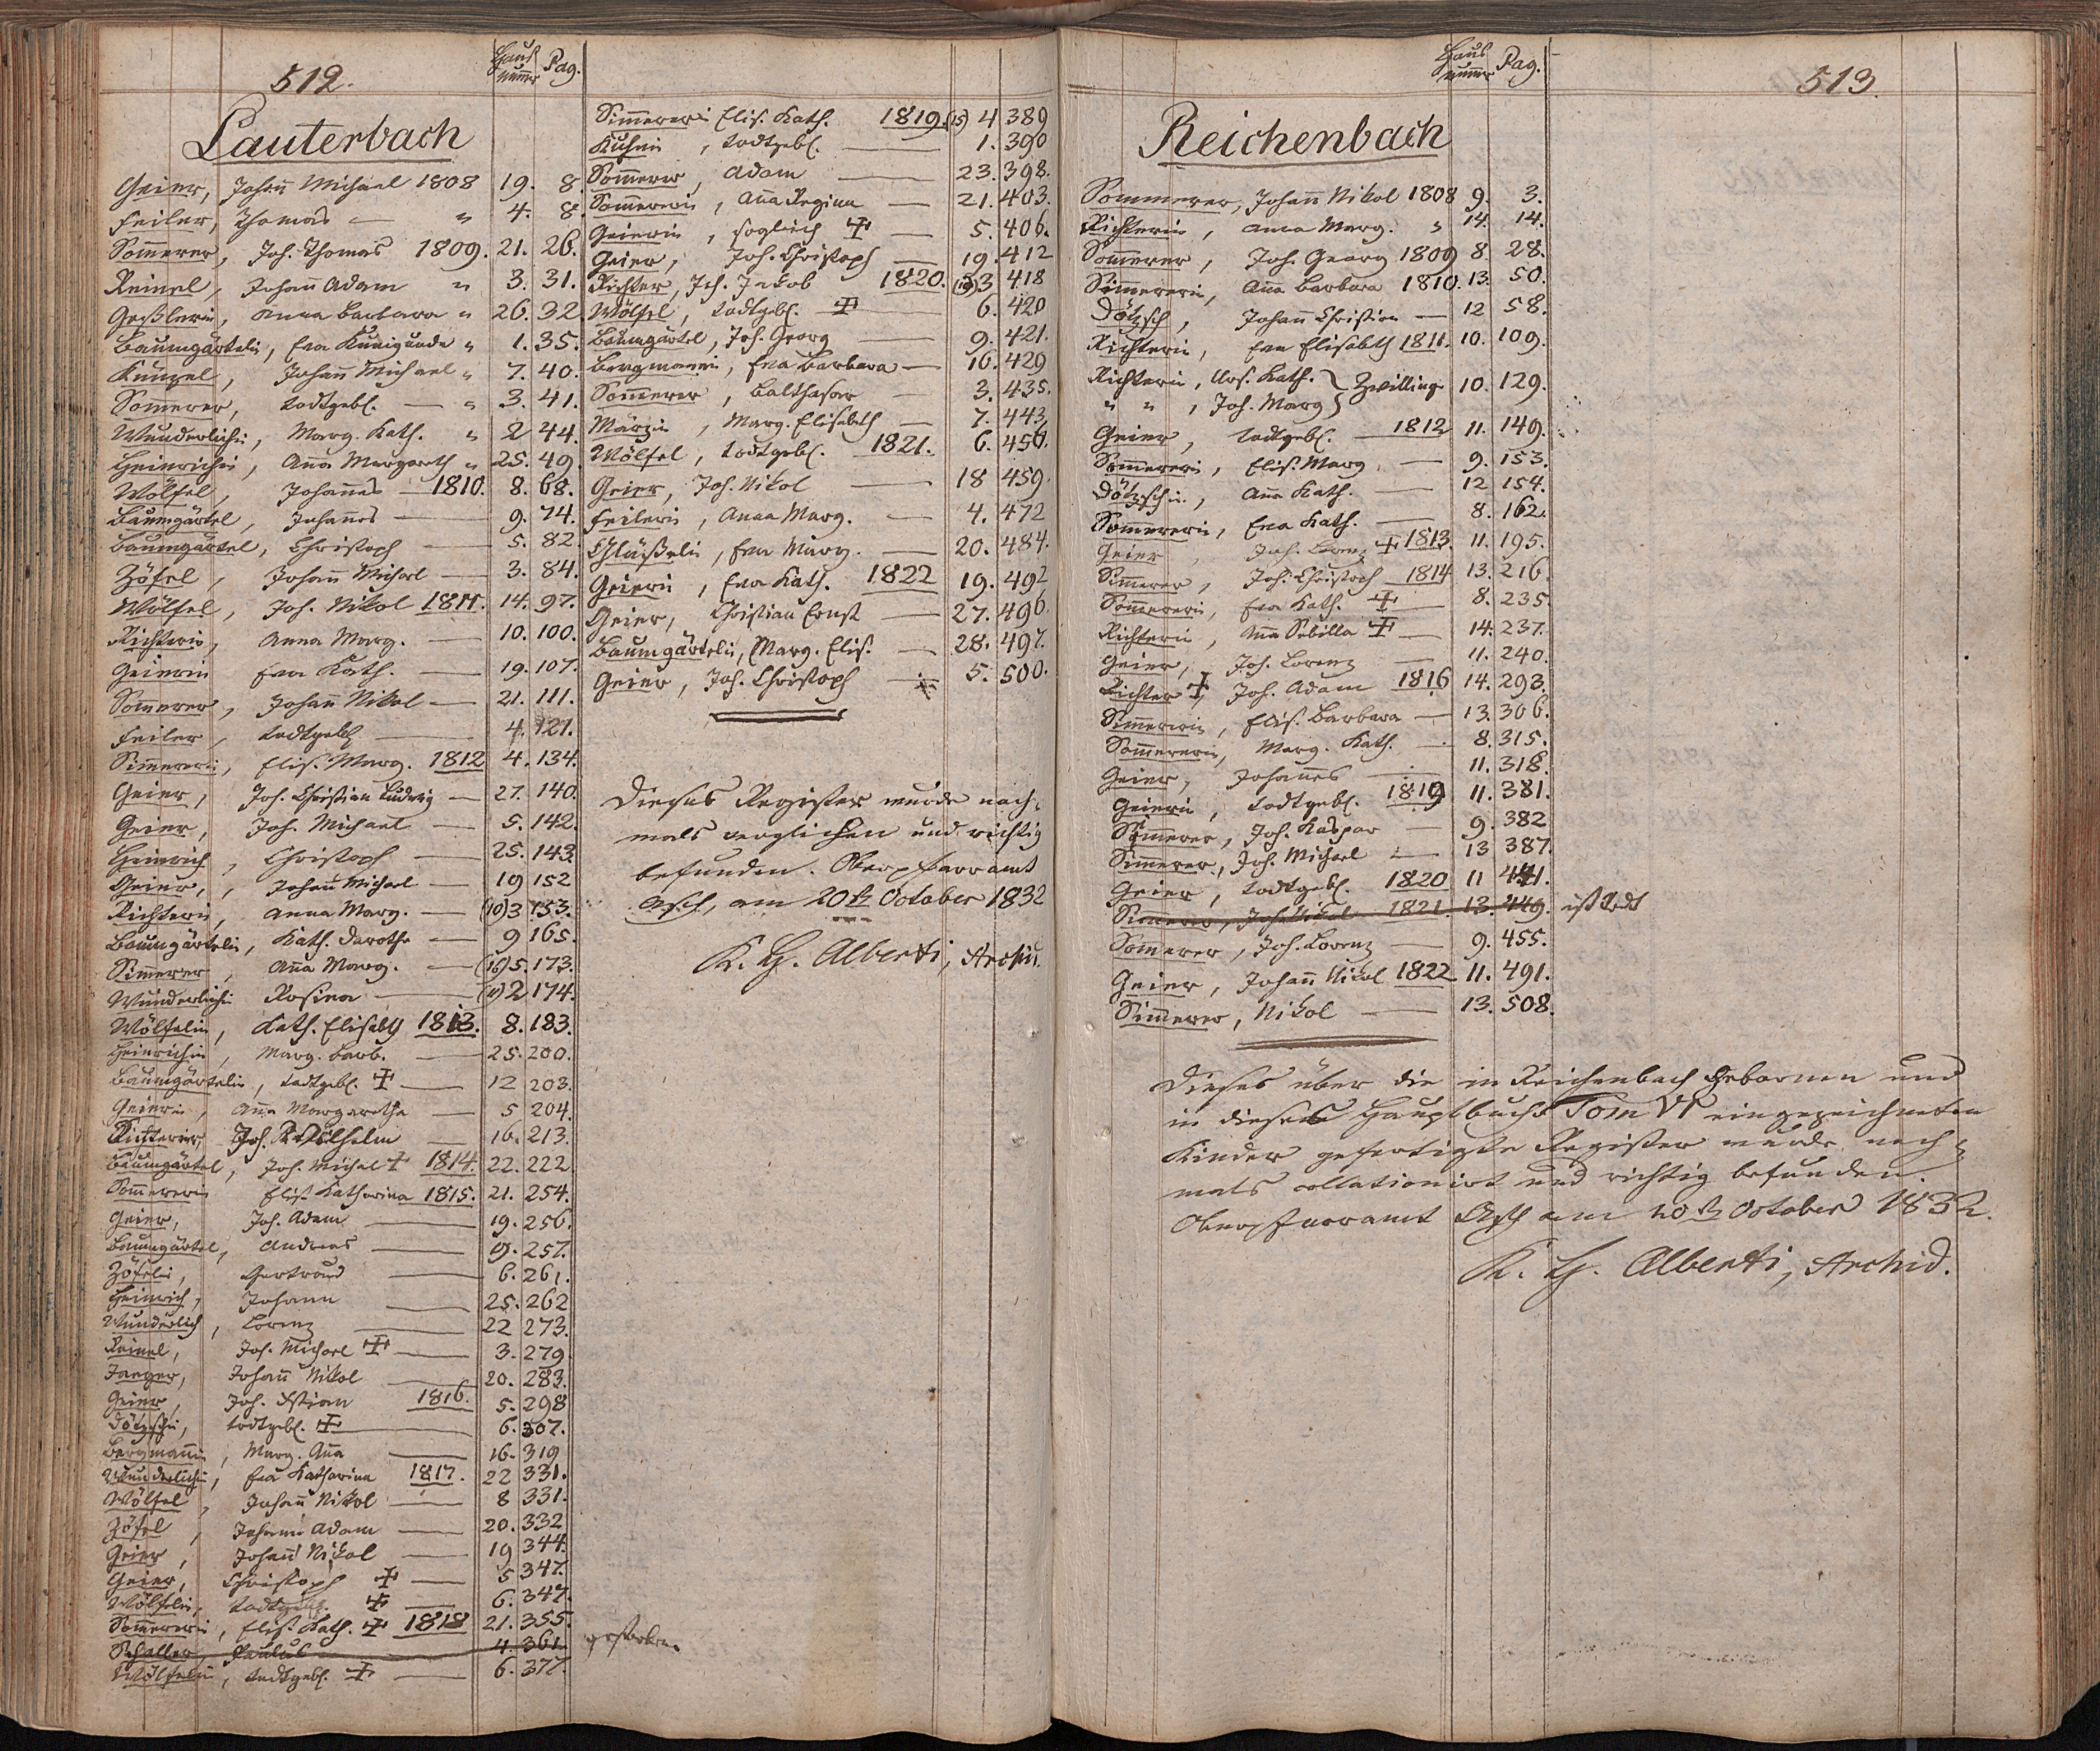 512.
Haus nummer Pag.
Lauterbach
Geier, Johann Michael 1808 19. 8.
Feiler, Thomas — " 4. 8.
Sommerer, Joh. Thomas 1809. 21. 26.
Reinel, Johann Adam " 3. 31.
Geßlerin, Anna Barbara " 26. 32.
Baumgärtelin, Eva Kunigunda " 1. 35.
Künzel, Johann Michael " 7. 40.
Sommerer, todtgeb. — " 3. 41.
Wunderlichin, Marg. Kath. " 2 44.
Heinrichin, Anna Margareth " 25. 49.
Wölfel, Johannes — 1810. 8. 68.
Baumgärtel, Johannes — 9. 74.
Baumgärtel, Christoph — 5. 82.
Zöfel, Johann Michael — 3. 84.
Wölfel, Joh. Nikol 1811. 14. 97.
Richterin, Anna Marg. — 10. 100.
Geierin Eva Kath. — 19. 107.
Sommerer, Johann Nikol — 21. 111.
Feiler, todtgeb. — 4. 121.
Simmererin, Elis. Marg. 1812 4. 134.
Geier, Joh. Christian Ludwig — 27. 140.
Geier, Joh. Michael — 5. 142.
Heinrich, Christoph — 25. 143.
Geier, Johann Michael — 19 152
Richterin, Anna Marg. — (10) 3 153.
Baumgärtelin, Kath. Dorothe — 9 165.
Simmerer, Anna Marg. — (16) 5. 173.
Wunderlichin Rosina — 2 174.
Wölfelin, Kath. Elisabeth 1813. 8. 183.
Heinrichin, Marg. Barb. — 25. 200.
Baumgärtelin, todtgeb. ✝ — 12 203.
Geierin, Anna Margaretha — 5 204.
Richterin, Joh. Wilhelm — 16. 213.
Baumgärtel, Joh. Michael ✝ 1814. 22. 222.
Sommererin Elis. Katharina 1815. 21. 254.
Geier, Joh. Adam — 19. 256.
Baumgärtel, Andreas — 9. 257.
Zöfelin, Gertraud — 6. 261.
Heinrich, Johann — 25. 262
Wunderlich, Lorenz — 22 273.
Reinel, Joh. Michael ✝ — 3. 279.
Jaeger, Johann Nikol — 20. 283.
Geier, Joh. Xstian 1816. 5. 298
Dötzschin, todtgeb. ✝ — 6. 307.
Bergmannin, Marg. Anna — 16. 319
Wunderlichin, Eva Katharina 1817. 22 331.
Wölfel, Johann Nikol — 8 331.
Zöfel, Johann Adam — 20. 332
Geier, Johann Nikol — 19 344.
Geier, Christoph ✝ — 5 347.
Wölfelin, todtgeb. ✝ — 6. 347.
Sommererin, Elis. Kath. ✝ 1818 21. 355.
Schaller, Paulus — 4. 361. gestorben.
Wölfelin, todtgeb. ✝ — 6. 377.
Simmererin Elis. Kath. 1819. (15) 4 389
Kuhnin, todtgeb. — 1. 390
Sommerer, Adam — 23. 398.
Sommererin, Anna Regina — 21. 403.
Geierin, sogleich ✝ — 5. 406.
Geier, Joh. Christoph — 19. 412
Richter, Joh. Jakob 1820. (10) 3 418
Wölfel, todtgeb. ✝ — 6. 420
Baumgärtel, Joh. Georg — 9. 421.
Bergmannin, Eva Barbara — 16. 429
Sommerer, Balthasar — 3. 435.
Märzin, Marg. Elisabeth — 7. 443.
Wölfel, todtgeb. 1821. 6. 456.
Geier, Joh. Nikol — 18 459.
Feilerin, Anna Marg. — 4. 472
Gläßelin, Eva Marg. — 20. 484.
Geierin, Eva Kath. 1822 19. 492
Geier, Christian Ernst — 27. 496.
Baumgärtelin, Marg. Elis. — 28. 497.
Geier, Joh. Christoph — 5. 500.
Dieses Register wurde noch-
mals verglichen und richtig
befunden. Oberpfarramt
Asch, am 20ten October 1832
K. H. Alberti, Archid.
513.
Haus nummer Pag.
Reichenbach
Sommerer, Johann Nikol 1808 9. 3.
Richterin, Anna Marg. " 14. 14.
Sommerer, Joh. Georg 1809 8. 28.
Simmererin, Anna Barbara 1810. 13. 50.
Dötzsch, Johann Christian — 12 58.
Richterin, Eva Elisabeth 1811. 10. 109.
Richterin, Urs. Kath. } Zwillinge 10. 129.
" ", Joh. Marg. }
Geier, todtgeb. — 1812 11. 149.
Sommererin, Elis. Marg. — 9. 153.
Dötzschin, Anna Kath. — 12 154.
Sommererin, Eva Kath. — 8. 162.
Geier, Joh. Lorenz ✝ 1813. 11. 195.
Simmerer, Joh. Christoph 1814 13. 216.
Sommererin, Eva Kath. ✝ — 8. 235.
Richterin, Anna Sibilla ✝ — 14. 237.
Geier, Joh. Lorenz — 11. 240.
Richter ✝, Joh. Adam 1816 14. 293.
Simmererin, Elis. Barbara — 13. 306.
Sommererin, Marg. Kath. — 8. 315.
Geier, Johannes — 11. 318.
Geierin, todtgeb. 1819 11. 381.
Sommerer, Joh. Kaspar — 9. 382
Simmerer, Joh. Michael — 13 387.
Geier, todtgeb. 1820 11 441.
Simmerer, Joh. Nikol 1821. 13. 449. ist todt
Sommerer, Joh. Lorenz — 9. 455.
Geier, Johann Nikol 1822 11. 491.
Simmerer, Nikol — 13. 508.
Dieses über die in Reichenbach Gebornen und
in dieses Hauptbuch Tom VI eingezeichneten
Kinder gefertigte Register wurde noch-
mals collationirt und richtig befunden.
Oberpfarramt Asch am 20ten October 1832.
K. H. Alberti, Archid.